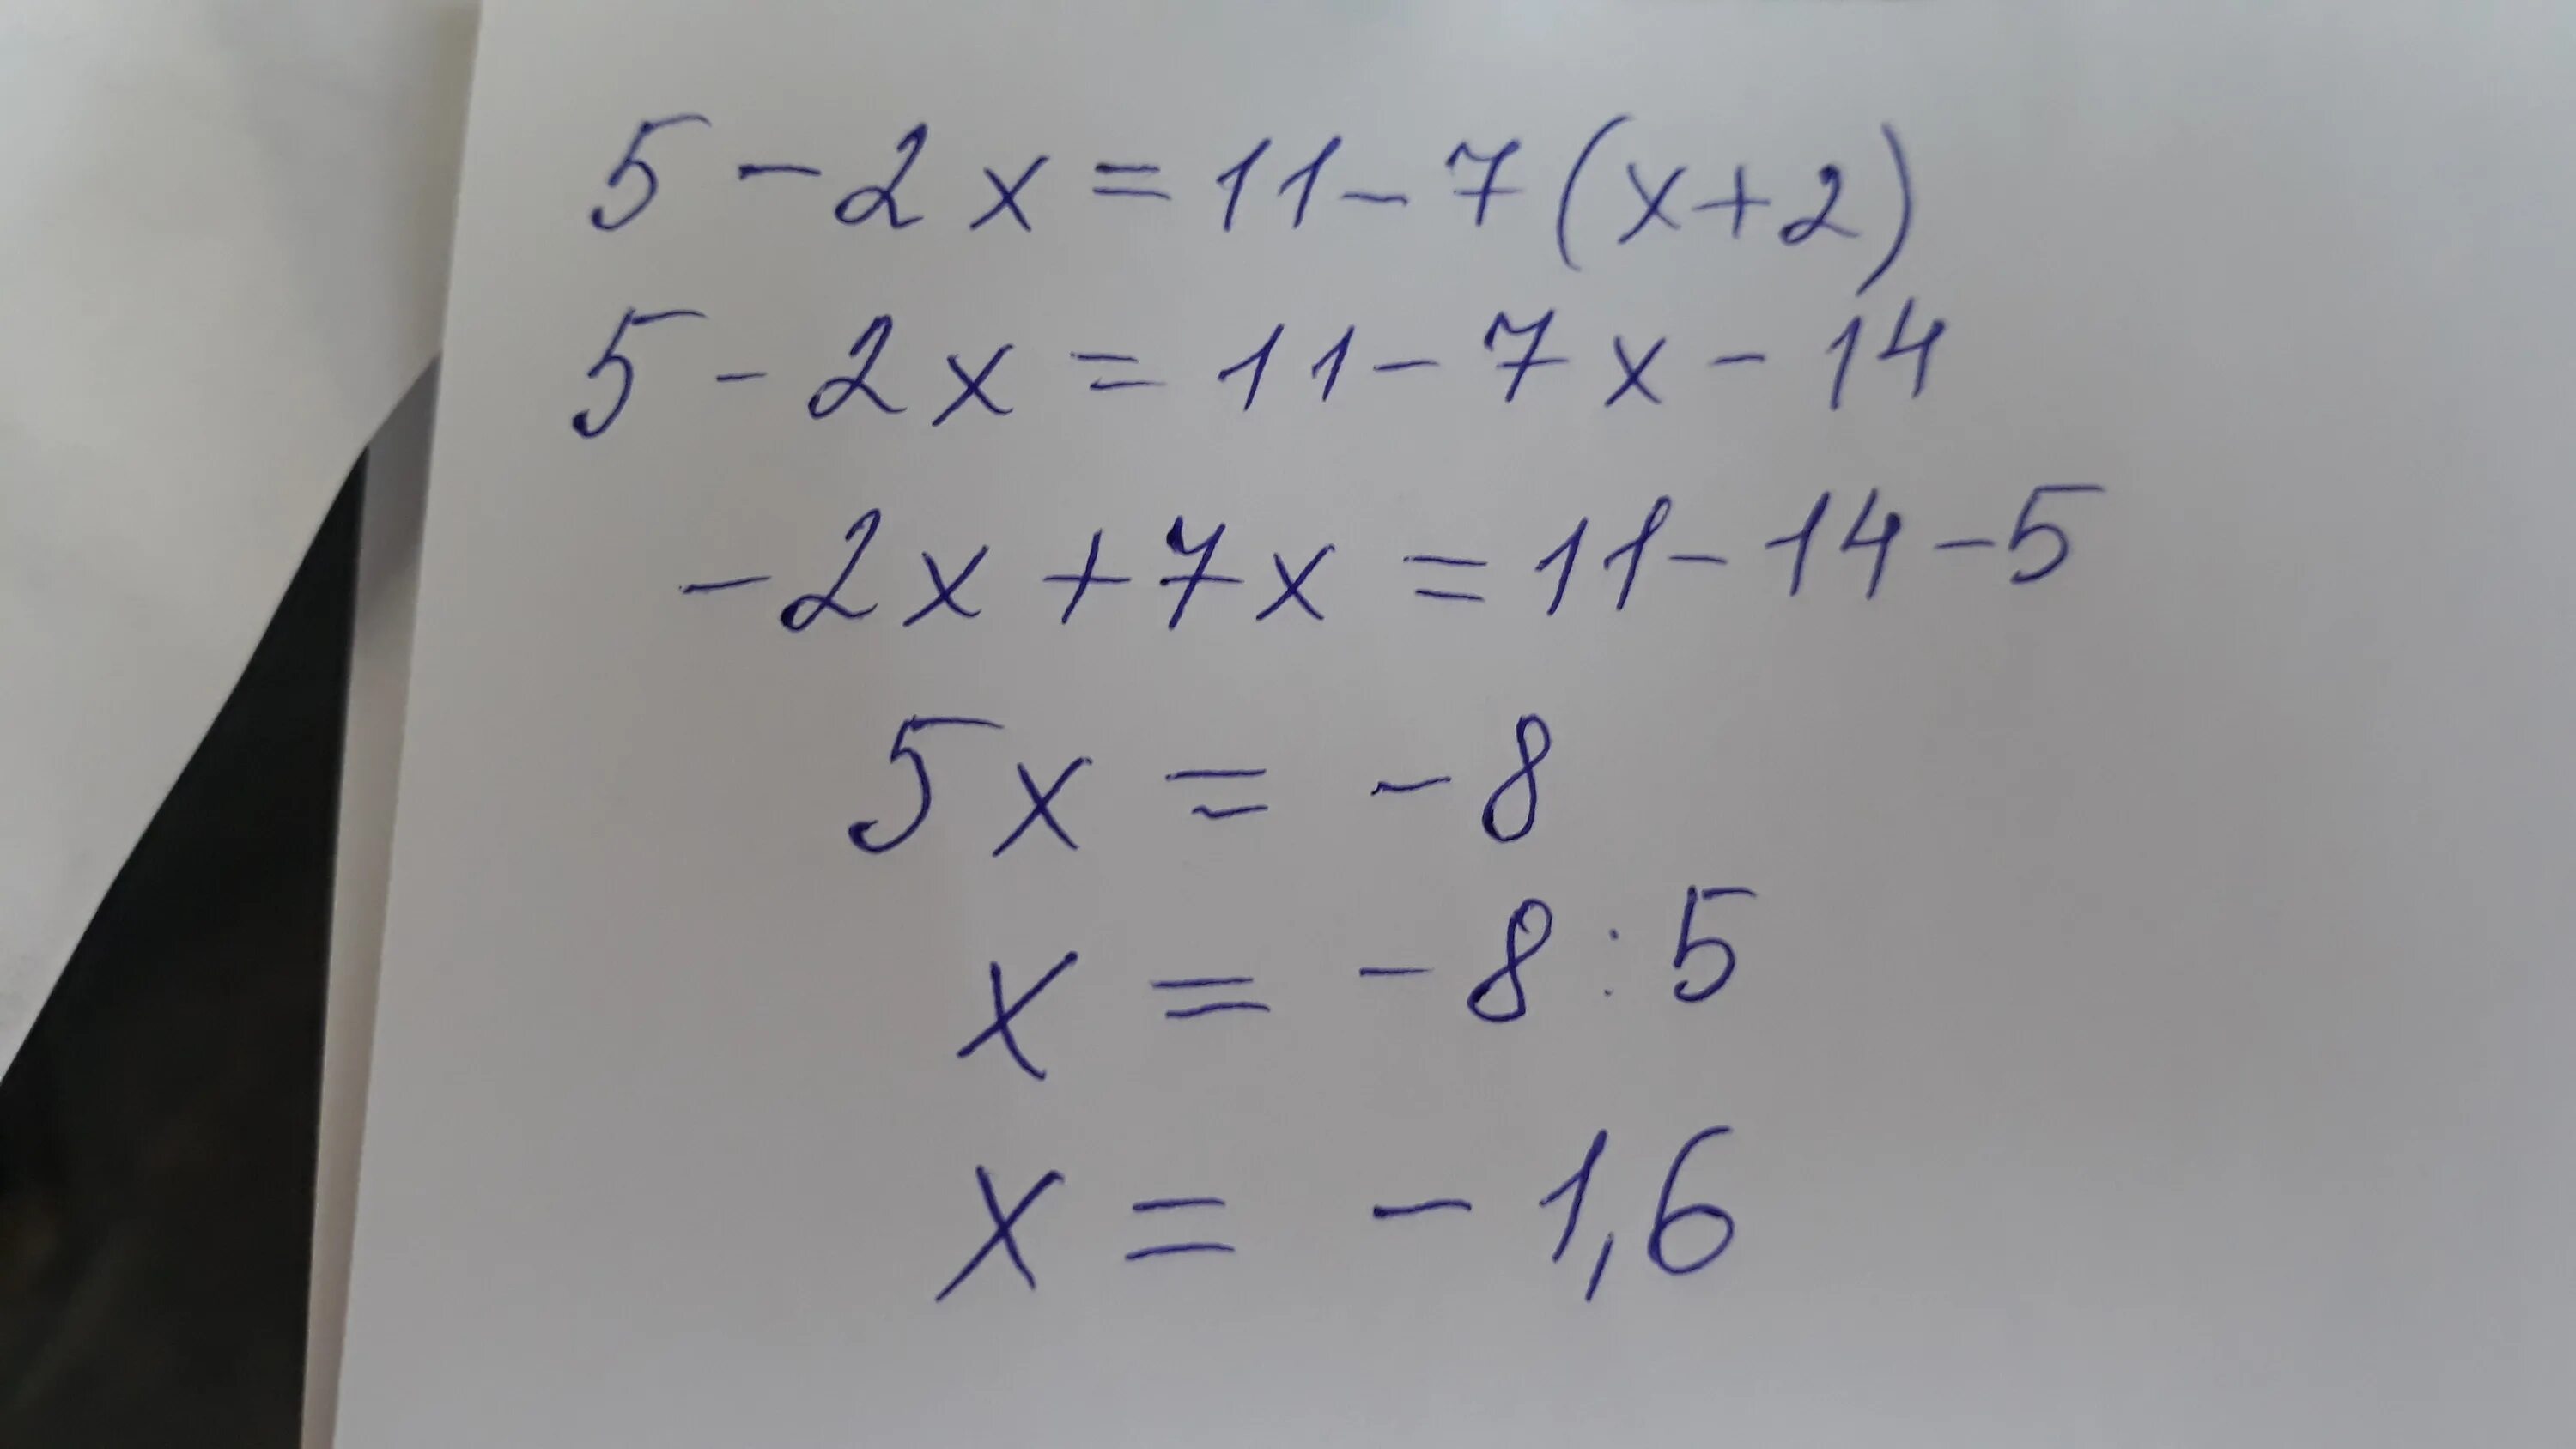 5 - 2x = 11 - 7(x+2)
5 - 2x = 11 - 7x - 14
-2x + 7x = 11 - 14 - 5
5x = -8
x = -8 : 5
x = -1,6